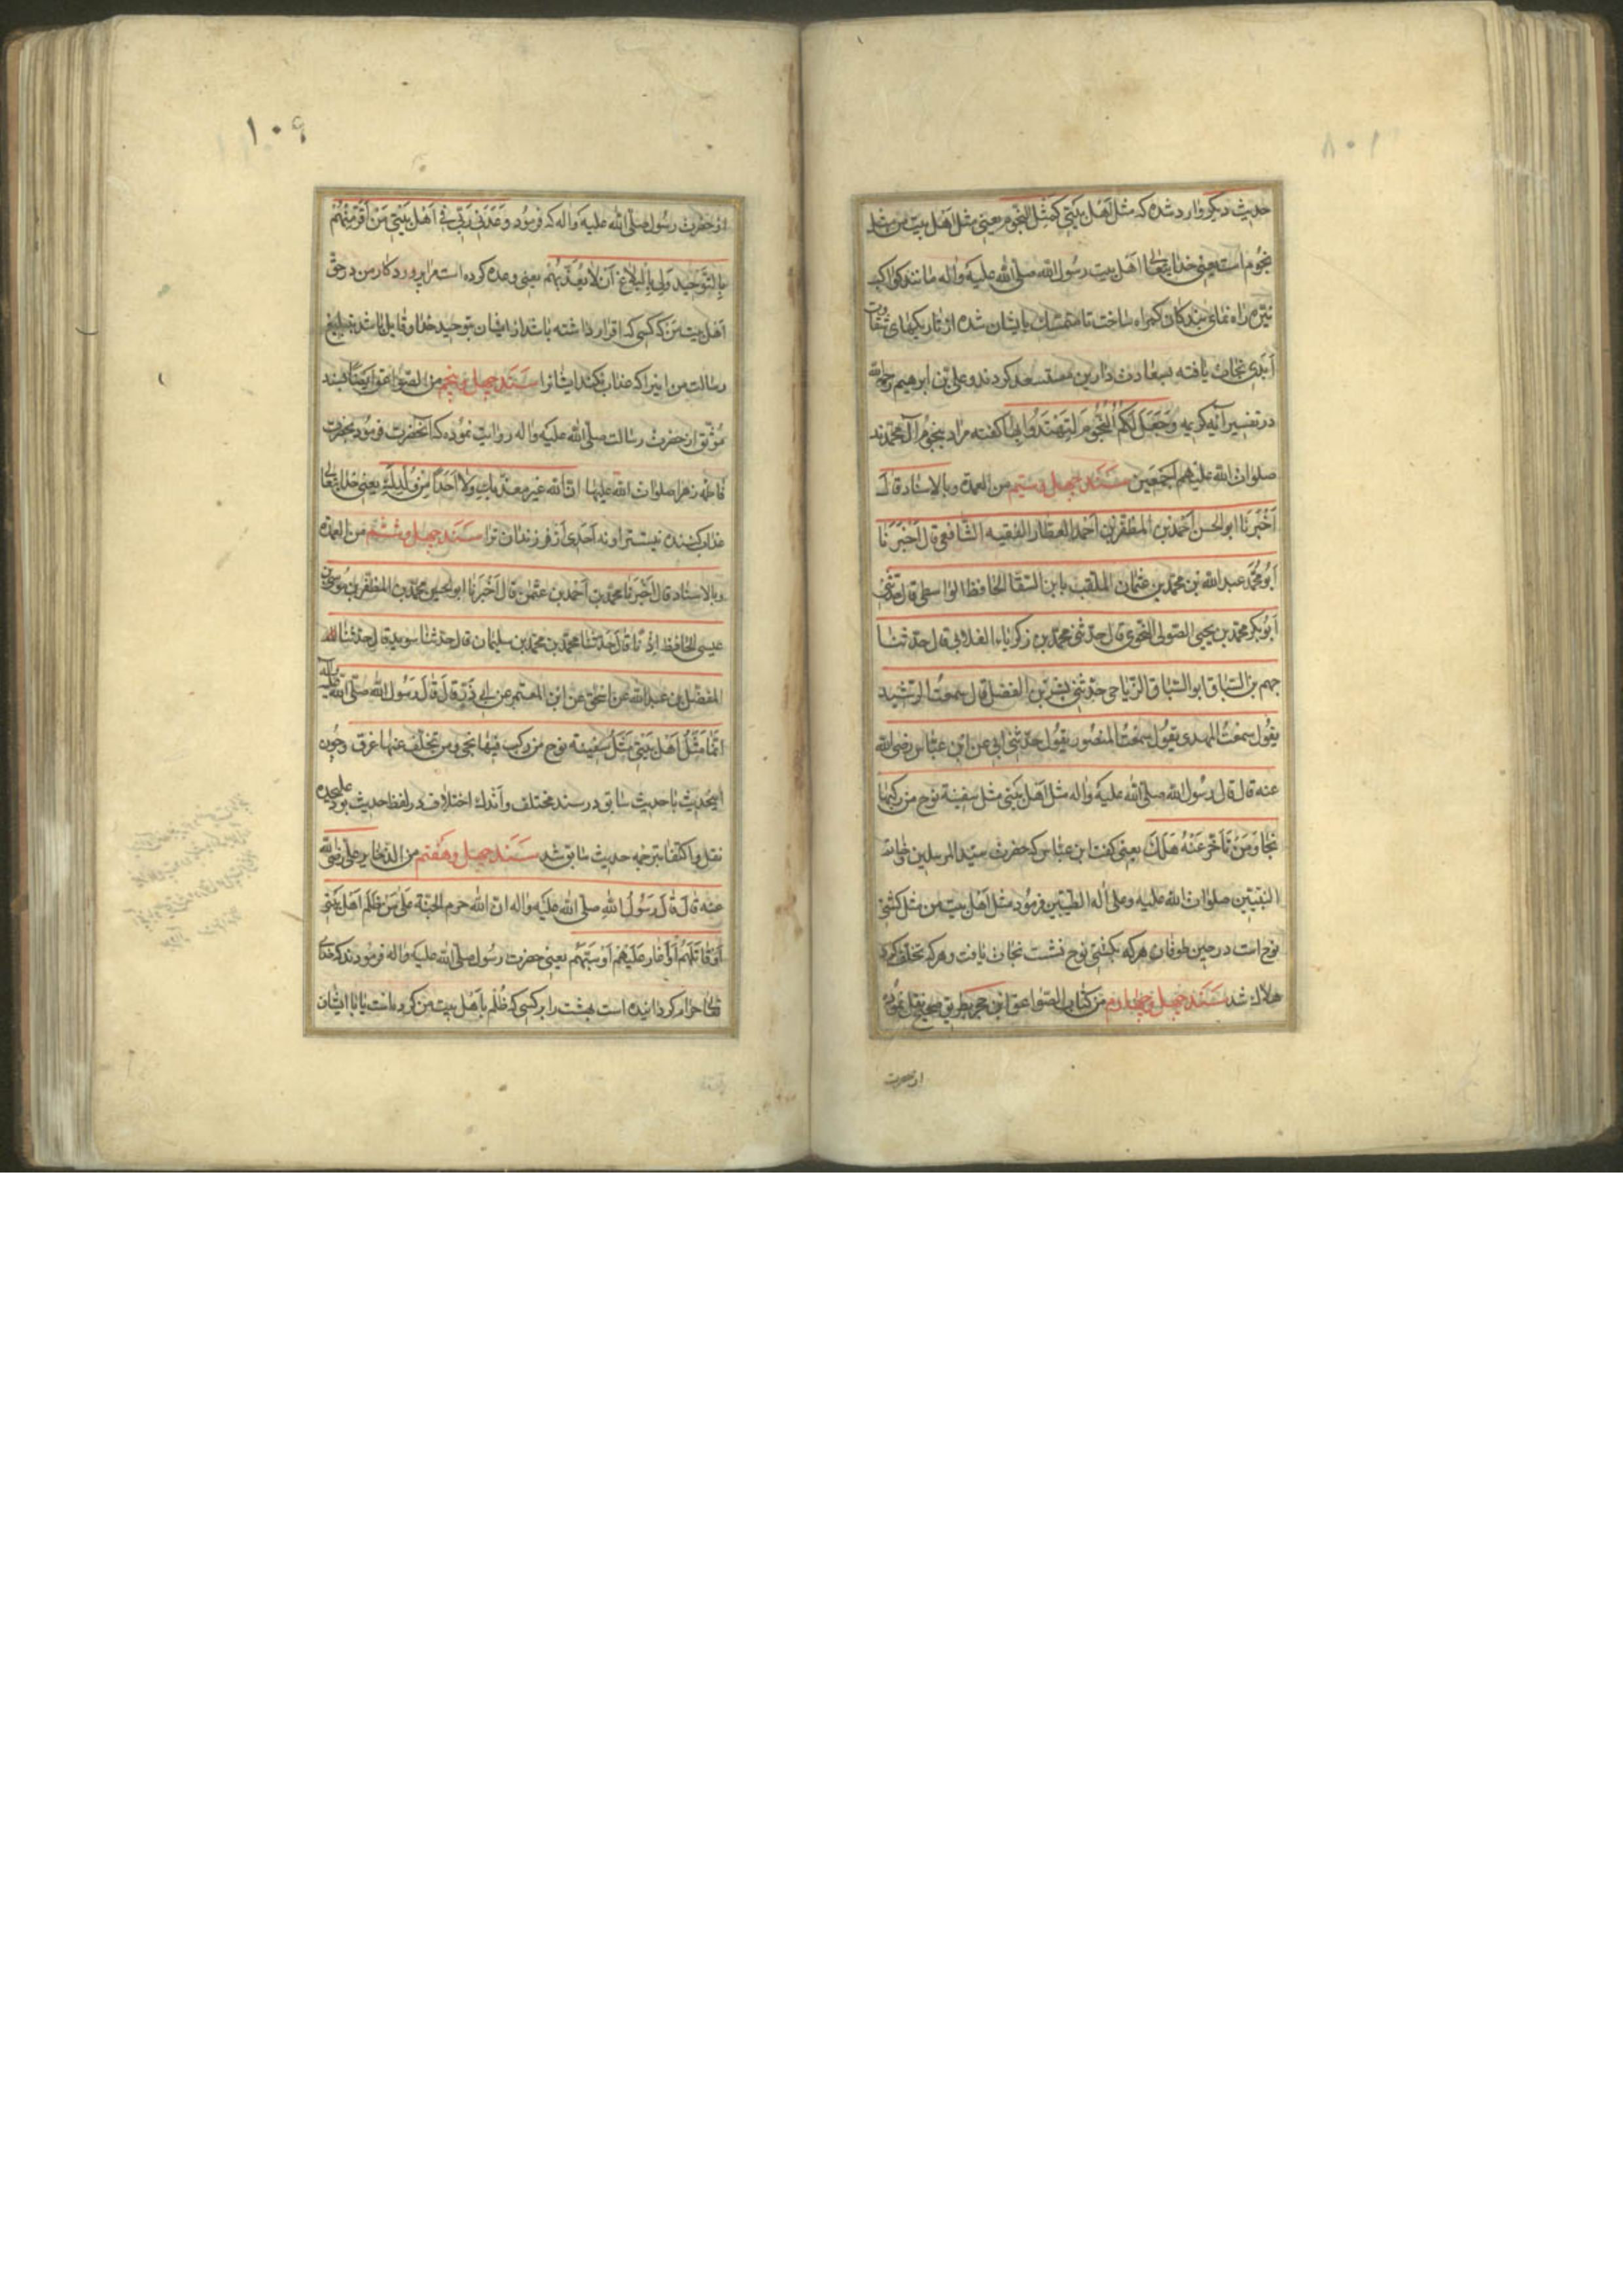 حدیث دیگر وارد شده که مثل اهل بیتی کمثل النجوم یعنی مثل اهل بیت من مثل
نجوم است یعنی خدایتعالی اهل بیت رسول الله صلی الله علیه واله مانند کواکب
نیّره راه نمای بندکان کمراه ساخت تا متمسک بایشان شده از تاریکیهای شقاوت
ابدی نجات یافته بسعادت دارین مستسعد کردند وعلی بن ابرهیم رحمه الله
در تفسیر آیه کریمه وَجَعَلَ لَکُمُ النُّجُومَ لِتَهْتَدُوا بِهَا کفته مراد بنجوم آل محمدند
صلوات الله علیهم اجمعین سند چهل وسیّم من العمدة وبالاسناد قال
اخبرنا ابوالحسن احمد بن المظفر بن احمد العطار الفقیه الشافعی قال اخبرنا
ابومحمد عبدالله بن محمد بن عثمان الملقب بابن السقا الحافظ الواسطی قال حدثنی
ابوبکر محمد بن یحیی الصولی النحوی قال حدثنی محمد بن زکریاء الغلابی قال حدثنا
جهم بن السباق ابوالسباق الریاحی حدثنی بشر بن الفضل قال سمعت الرشید
یقول سمعت المهدی یقول سمعت المنصور یقول حدثنی ابی عن ابن عباس رضی الله
عنه قال قال رسول الله صلی الله علیه واله مثل اهل بیتی مثل سفینة نوح من رکبها
نجا وَمَنْ تَأَخَّرَ عَنْهُ هَلَكَ یعنی کفت ابن عباس که حضرت سید المرسلین خاتم
النبیین صلوات الله علیه وعلی اله الطیبین فرمود مثل اهل بیت من مثل کشتی
نوح است در حین طوفان هرکه بکشتی نوح نشست نجات یافت وهرکه تخلف کرد
هلاك شد سند چهل وچهارم من کتاب الصواعق ابن حجر بطریق صحیح نقل نموده
از حضرت
١٠٩
از حضرت رسول صلی الله علیه واله که فرمود وعدنی ربی فی اهل بیتی من اقرّ منهم
بالتوحید ولی بالبلاغ ان لا یعذبهم یعنی وعده کرده است مرا پروردکار من در حق
اهل بیت من که کسی که اقرار داشته باشد از ایشان بتوحید خدا وقایل باشد بتبلیغ
رسالت من اینرا که عذاب نکند ایشانرا سند چهل وپنجم من الصواعق ایضًا بسند
موثق از حضرت رسالت صلی الله علیه واله روایت نموده که آنحضرت فرمود بحضرت
فاطمه زهرا صلوات الله علیها ان الله غیر معذبك ولا احدًا من ولدك یعنی خدایتعالی
عذاب کننده نیست ترا ونه احدی از فرزندان ترا سند چهل وششم من العمدة
وبالاسناد قال اخبرنا محمد بن احمد بن عثمن قال اخبرنا ابوالحسین محمد بن المظفر بن موسی بن
عیسی الحافظ اذنًا قال حدثنا محمد بن محمد بن سلیمان قال حدثنا سوید قال حدثنا
المفضل بن عبدالله عن اسحق عن ابن المعتمر عن ابی ذر قال قال رسول الله صلی الله علیه واله
انما مثل اهل بیتی مثل سفینة نوح من رکب فیها نجی ومن تخلف عنها غرق وچون
اینحدیث با حدیث سابق در سند مختلف واندك اختلاف در لفظ حدیث بود علیحده
نقل واکتفا بترجمه حدیث سابق شد سند چهل وهفتم من الذخایر علی رضی الله
عنه قال قال رسول الله صلی الله علیه واله ان الله حرم الجنة علی من ظلم اهل بیتی
او قاتلهم او اغار علیهم او سبّهم یعنی حضرت رسول صلی الله علیه واله فرمودند که خدای
تعالی حرام کردانیده است بهشت را بر کسی که ظلم با اهل بیت من کرده است یا با ایشان